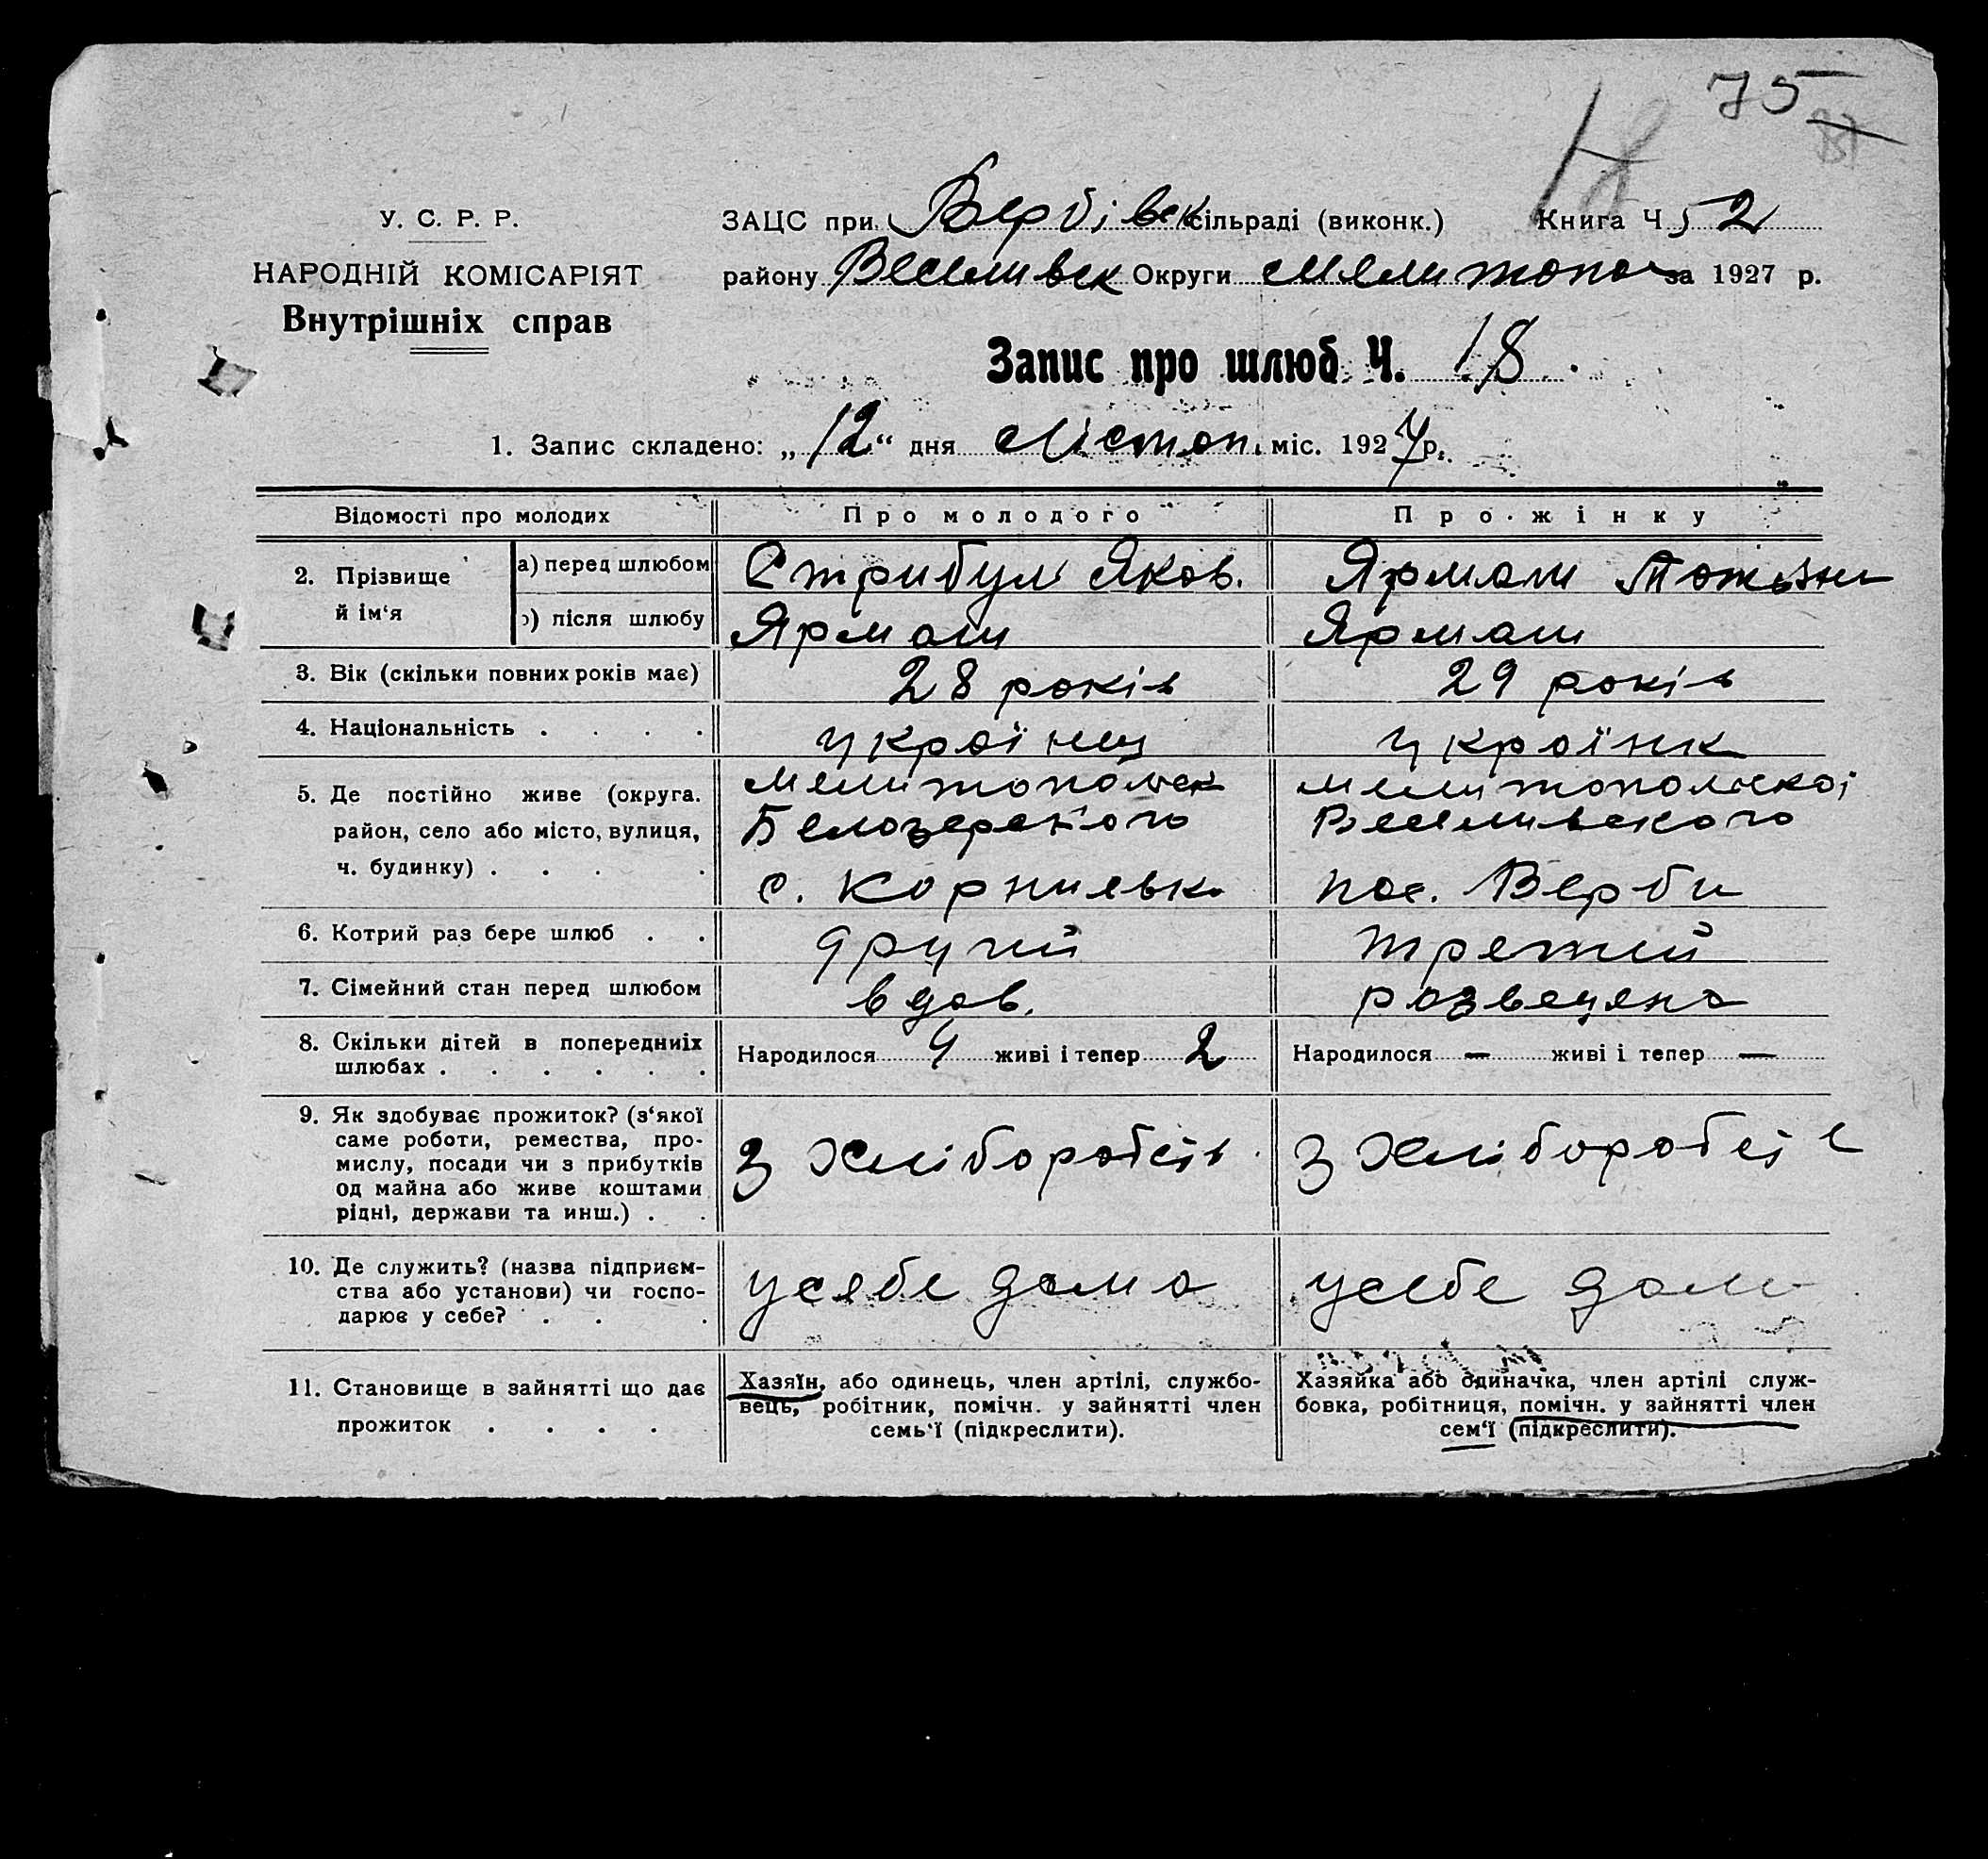 75
18
У. С. Р. Р.
НАРОДНІЙ КОМІСАРІЯТ
Внутрішніх справ
ЗАЦС при Вербівск сільраді (виконк.) Книга Ч. 2
району Веселивск Округи Мелитопо за 1927 р.
Запис про шлюб Ч. 18.
1. Запис складено: „12“ дня Листоп. міс. 1927 р.
Відомості про молодих Про молодого Про жінку
2. Прізвище й ім‘я
а) перед шлюбом Стрибул Яков. Ярмаш
після шлюбу Ярмаш Ярмаш
3. Вік (скільки повних років має) 28 років 29 років
4. Національність . . . . українц українк
5. Де постійно живе (округа. район, село або місто, вулиця, ч. будинку) . . . .
Мелитопольск Мелитопольскоі
Белозерского Веселивского
с. Корниевк. пос. Верби
6. Котрий раз бере шлюб . . другий третий
7. Сімейний стан перед шлюбом вдов. розведена
8. Скільки дітей в попередниіх шлюбах . . . . . .
Народилося 4 живі і тепер 2 Народилося — живі і тепер —
9. Як здобуває прожиток? (з‘якої
саме роботи, ремества, про-
мислу, посади чи з прибутків
од майна або живе коштами
рідні, держави та инш.) . .
З Хліборобств З Хліборобст
10. Де служить? (назва підприєм-
ства або установи) чи госпо-
дарює у себе? . . .
усебе дома усебе дом
11. Становище в зайнятті що дає
прожиток . . . .
Хазяїн, або одинець, член артілі, службо-
вець, робітник, помічн. у зайнятті член
семь‘ї (підкреслити).
Хазяйка або одиначка, член артілі служ-
бовка, робітниця, помічн. у зайнятті член
сем‘ї (підкреслити).